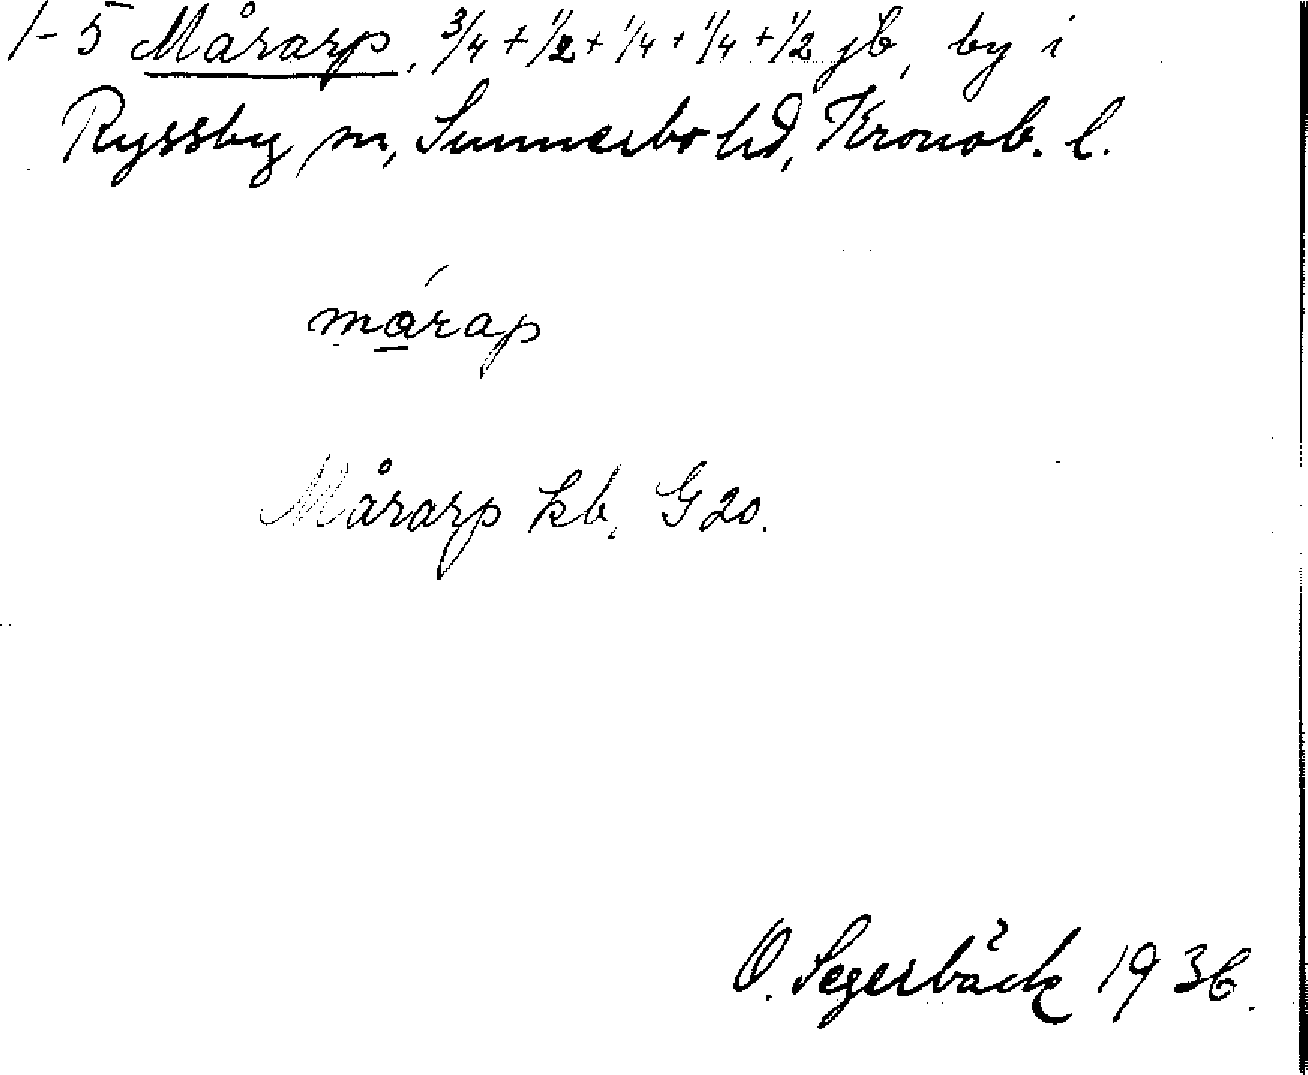 1-5 Mårarp, 3/4 + 1/2 + 1/4 + 1/4 + 1/2 jb, by i
Ryssby sn, Sunnerbo hd, Kronob. l.
márap
Mårarp kb, G 20.
O. Segerbäck 1936.